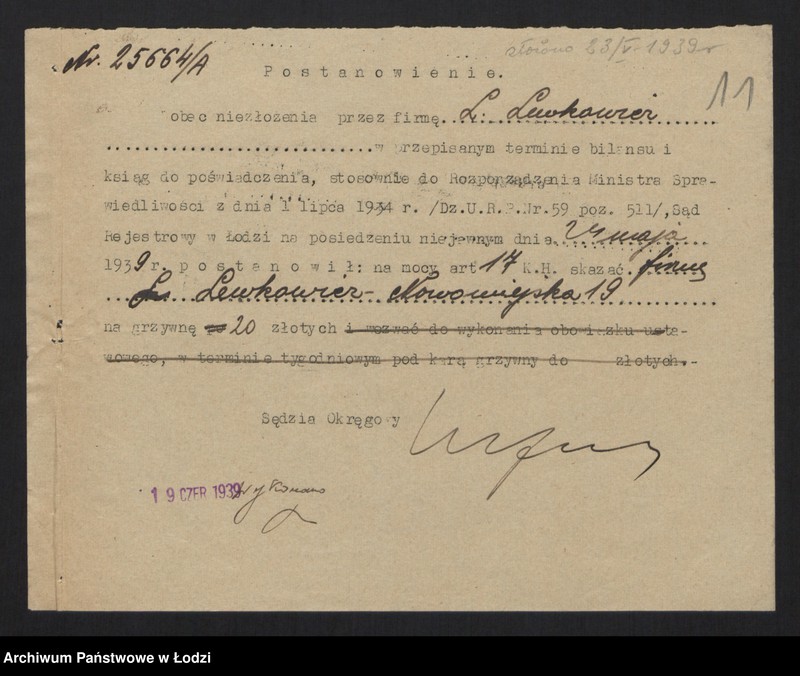 Nr. 25664/A
złożono 23/V-1939 r
11
Postanowienie.
obec niezłożenia przez firmę L. Lewkowicz
w przepisanym terminie bilansu i
ksiąg do poświadczenia, stosownie do Rozporządzenia Ministra Spra-
wiedliwości z dnia 1 lipca 1934 r. /Dz.U.R.P.Nr.59 poz. 511/, Sąd
Rejestrowy w Łodzi na posiedzeniu niejawnym dnia maja
1939 r. postanowił: na mocy art 17 K.H. skazać firmę
L. Lewkowicz - Nowomiejska 19
na grzywnę 20 złotych i wezwać do wykonania obowiązku usta-
wowego, w terminie tygodniowym pod karą grzywny do złotych.-
Sędzia Okręgowy
19 CZER 1939 Wykonano
Archiwum Państwowe w Łodzi